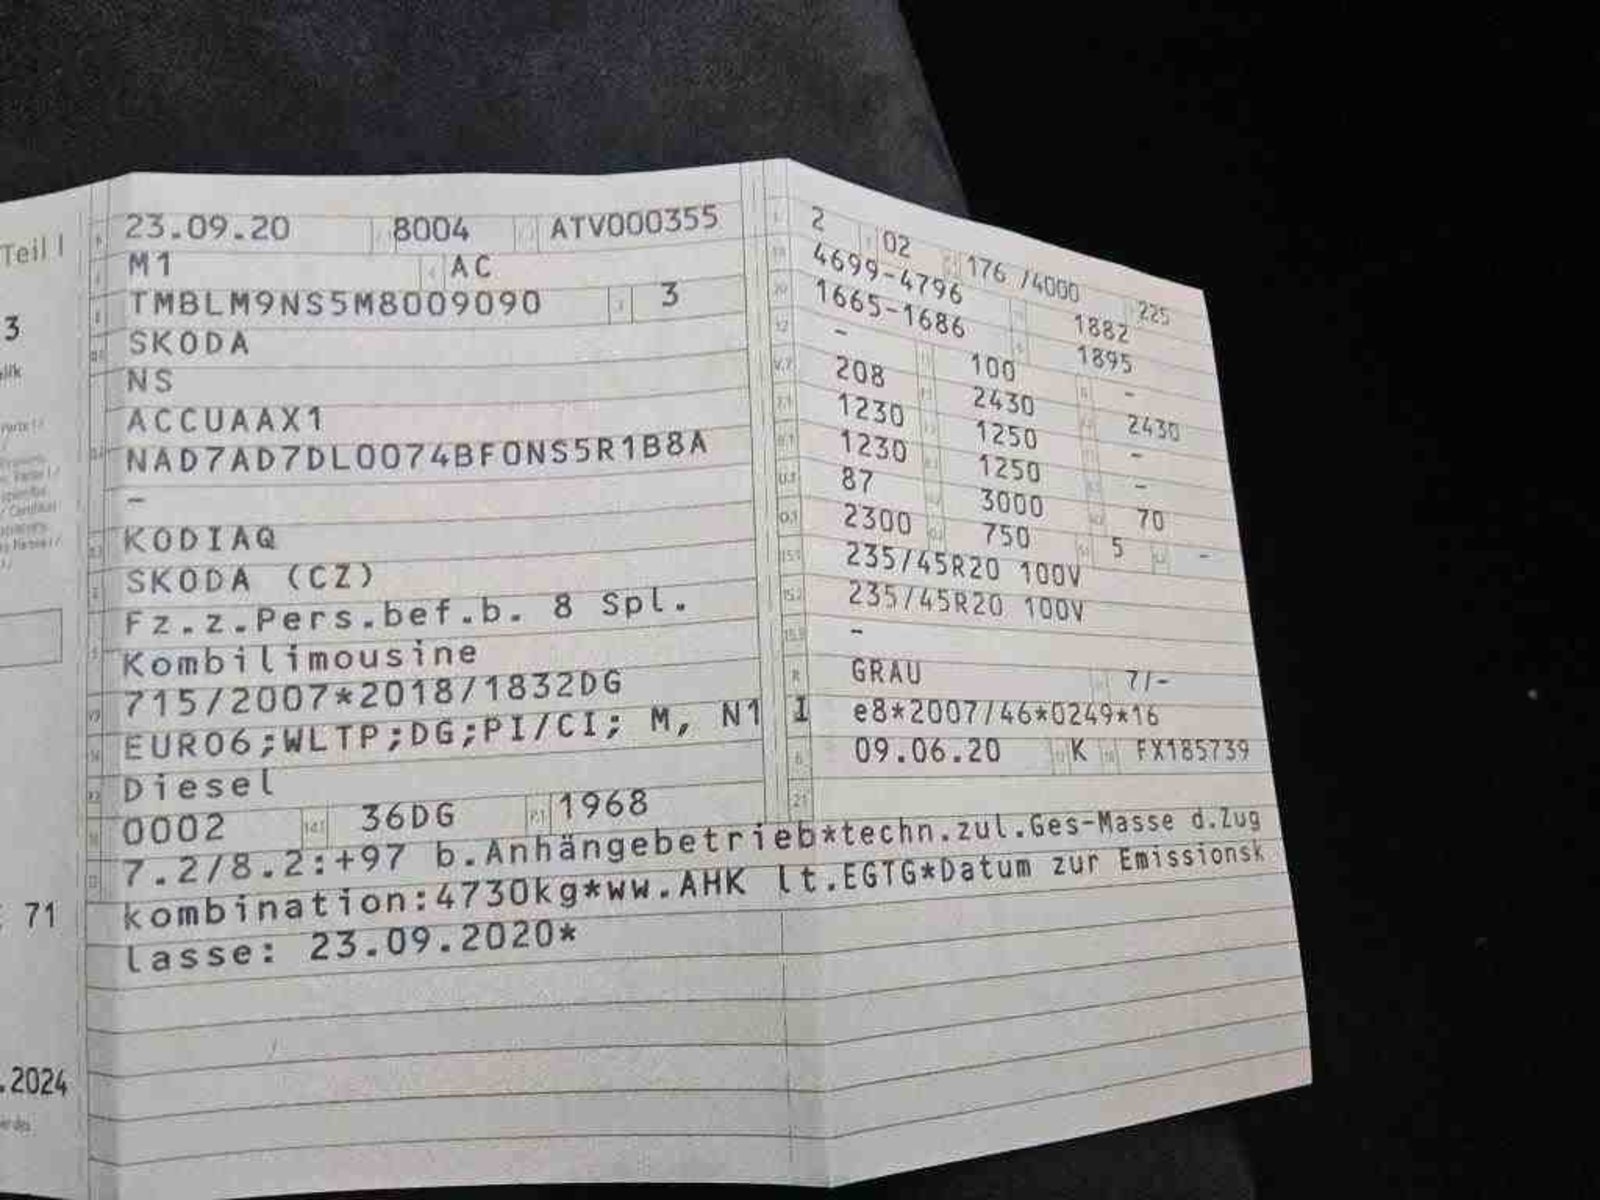 Teil I
3
71
.2024
23.09.20 8004 ATV000355
M1 AC
TMBLM9NS5M8009090 3
SKODA
NS
ACCUAAX1
NAD7AD7DL0074BF0NS5R1B8A
-
KODIAQ
SKODA (CZ)
Fz.z.Pers.bef.b. 8 Spl.
Kombilimousine
715/2007*2018/1832DG
EURO6;WLTP;DG;PI/CI; M, N1 I
Diesel
0002 14.1 36DG P.1 1968
2 02 176 /4000 225
4699-4796 1882
1665-1686 1895
- 100 -
208 2430 2430
1230 1250 -
1230 1250 -
87 3000 70
2300 750 5 -
235/45R20 100V
235/45R20 100V
-
GRAU 7/-
e8*2007/46*0249*16
09.06.20 K FX185739
21
7.2/8.2:+97 b.Anhängebetrieb*techn.zul.Ges-Masse d.Zug
kombination:4730kg*ww.AHK lt.EGTG*Datum zur Emissionsk
lasse: 23.09.2020*